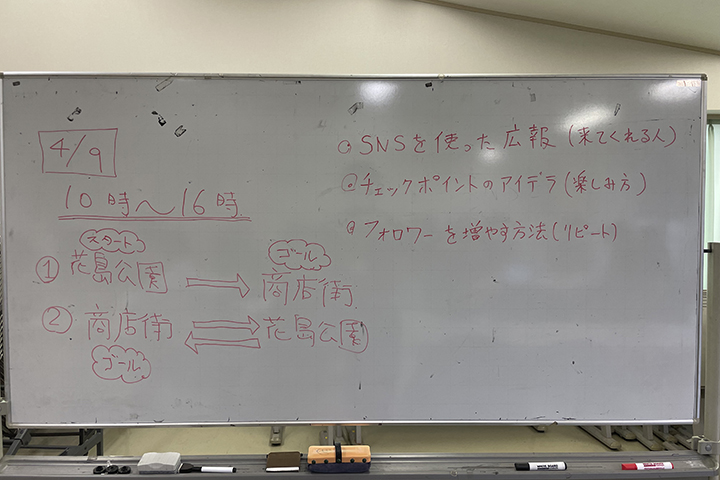 4/9
10時～16時
スタート
①花島公園
ゴール
商店街
②商店街
花島公園
ゴール
SNSを使った広報(来てくれる人)
チェックポイントのアイデラ(楽しみ方)
フォロワーを増やす方法(リピート)
WHITE BOARD